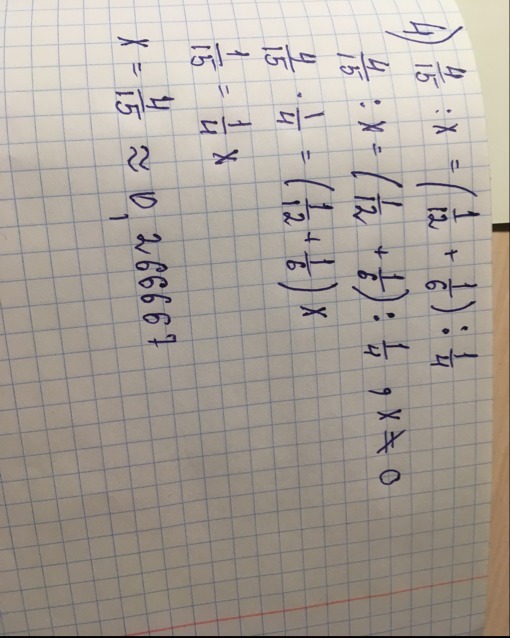 4) 4/15 : x = (1/12 + 1/6) : 1/4
4/15 : x = (1/12 + 1/6) : 1/4 , x ≠ 0
4/15 · 1/4 = (1/12 + 1/6) x
1/15 = 1/4 x
x = 4/15 ≈ 0,266667